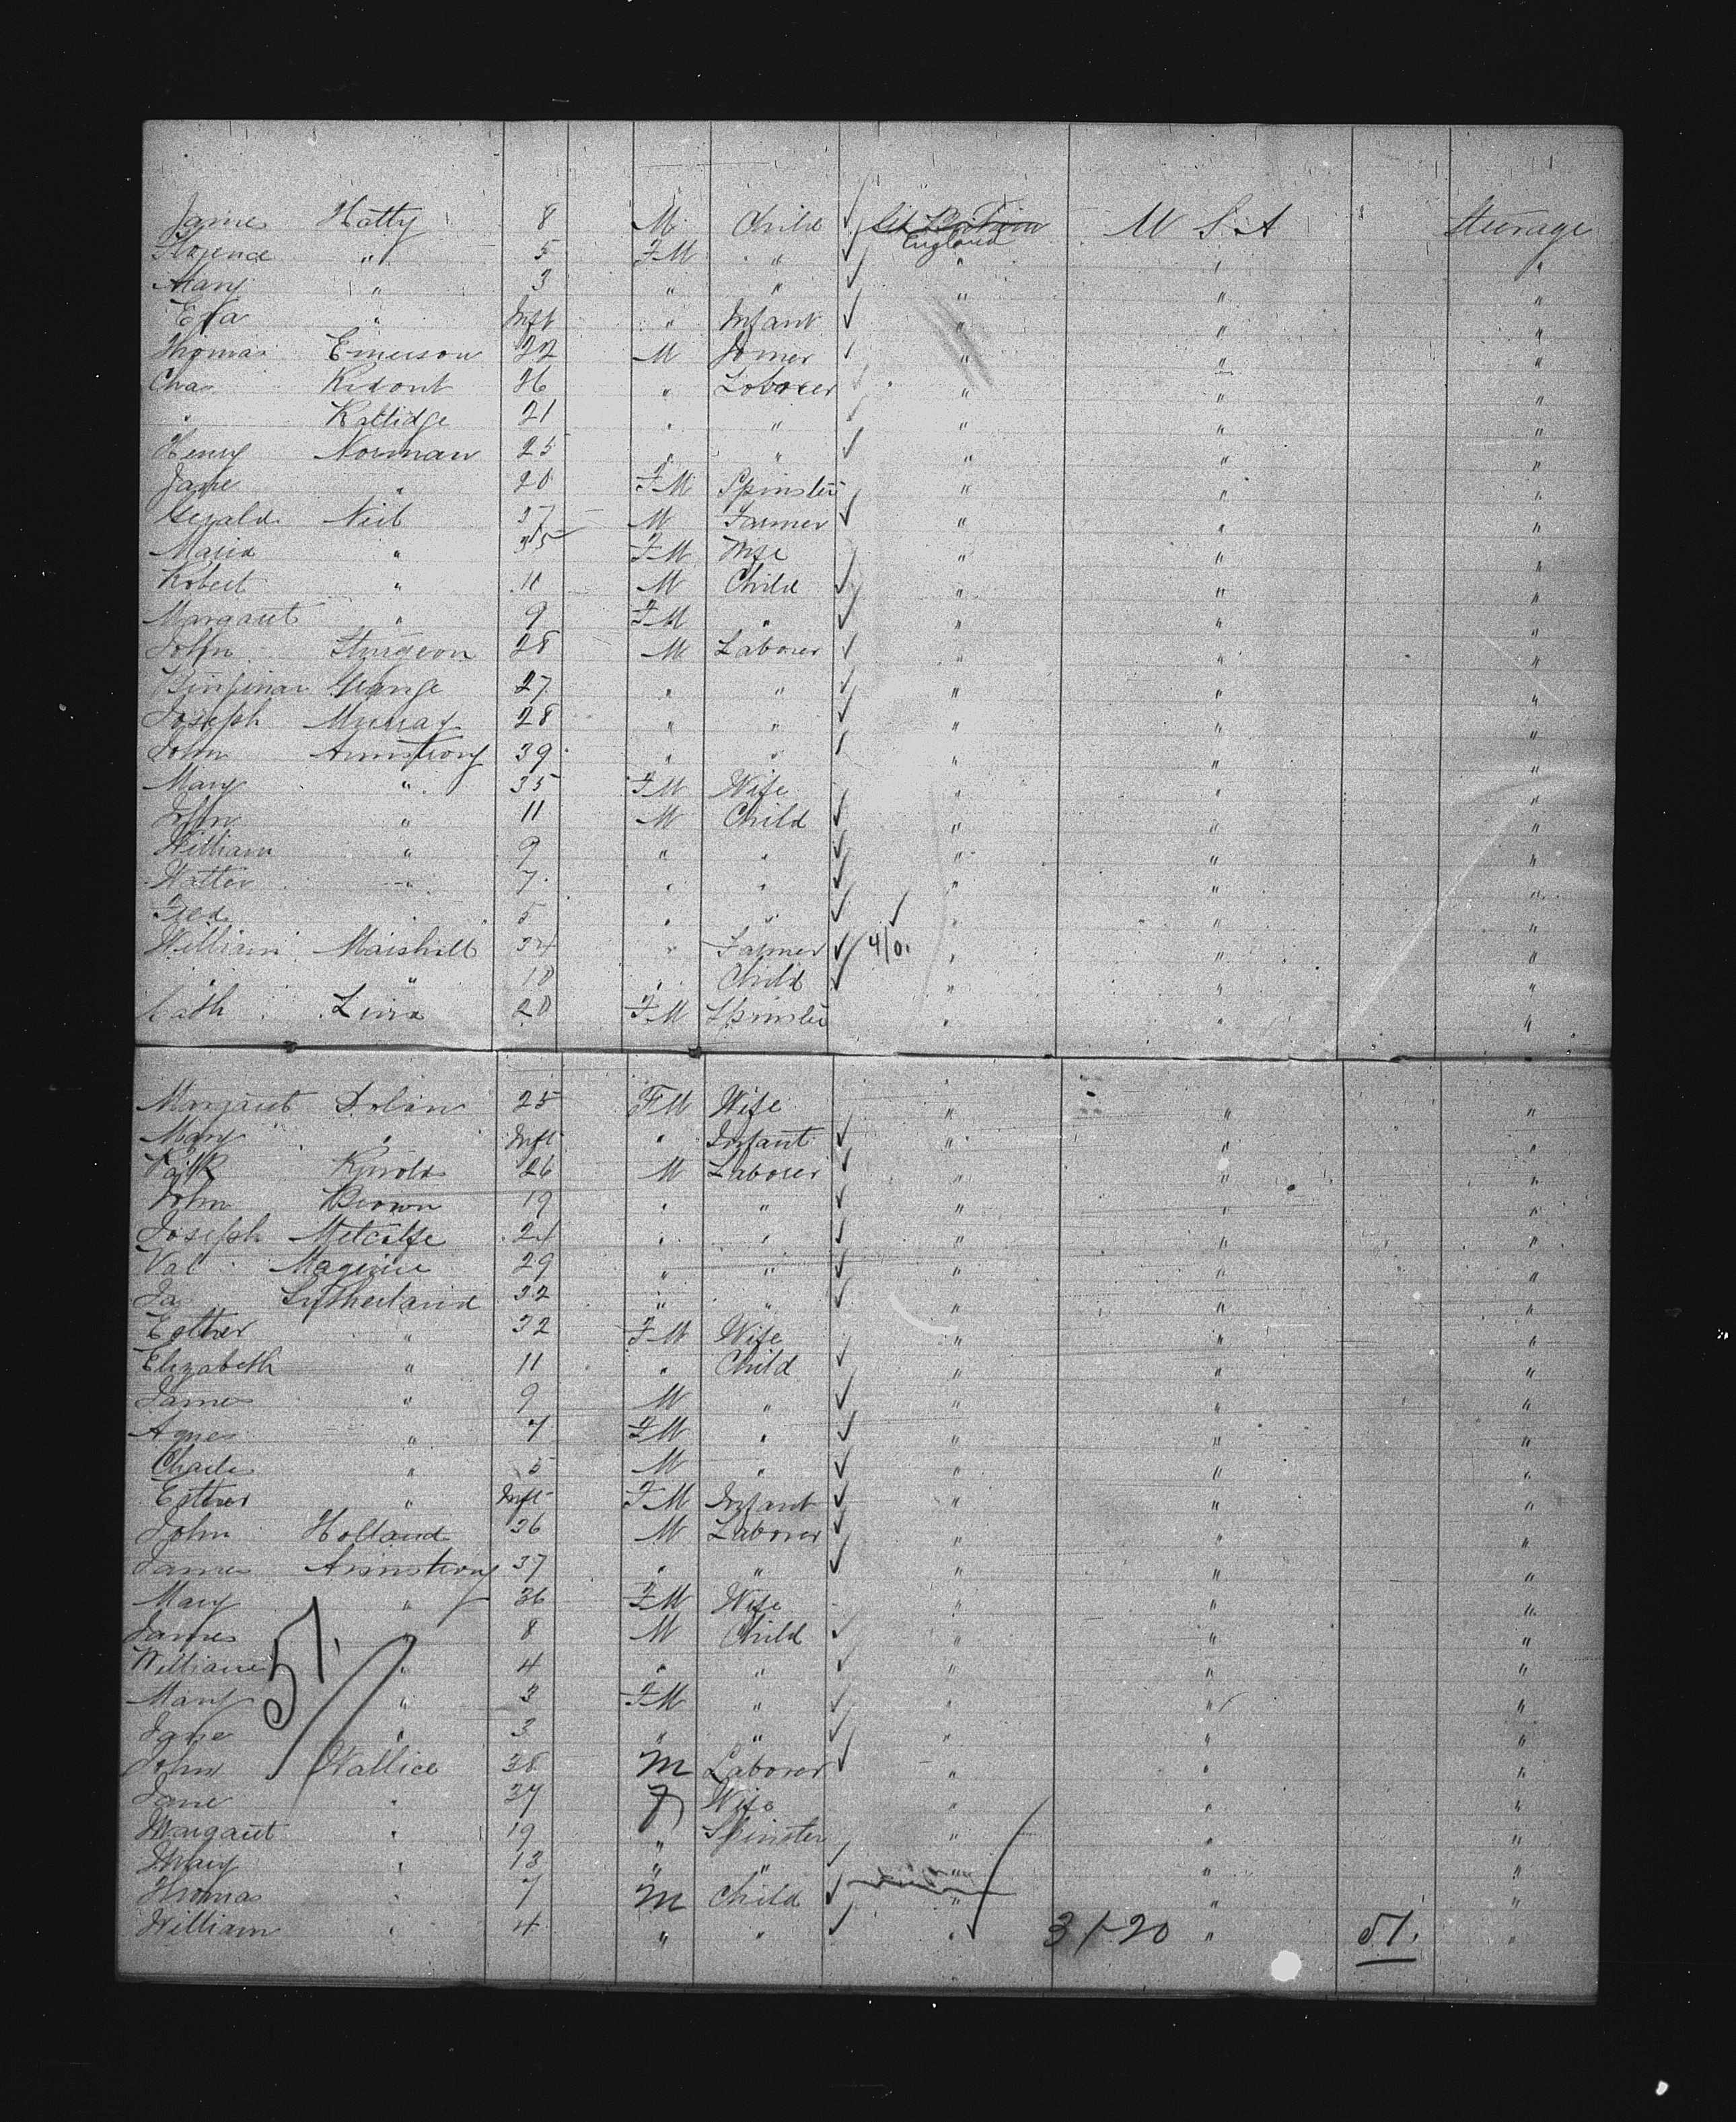 James Hatty 8 M Child Gt Britain U S A Steerage
England
Florence " 5 FM " " " "
Mary " 3 " " " " "
Eva " Inft " Infant " " "
Thomas Emerson 22 M Joiner " " "
Chas Ridout 26 " Laborer " " "
" 21 " " " " "
Henry Norman 25 " " " " "
Jane " 20 FM Spinster " " "
Gerald Neil 37 M Farmer " " "
Maria " 35 FM Wfe " " "
Robert " 11 M Child " " "
Margaret " 9 FM " " " "
John Sturgeon 28 M Laborer " " "
George 27 " " " " "
Joseph Murray 28 " " " " "
John Armstrong 39 " " " " "
Mary " 35 FM Wife " " "
John " 11 M Child " " "
William " 9 " " " " "
Walter " 7 " " " " "
Fred " 5 " " " " "
William Marshall 34 " Farmer 4/0. " " "
" " 10 " Child " " "
Cath 20 FM Spinster " " "
Margaret Dolan 25 FM Wife " " "
Mary " Inft " Infant " " "
Patk 26 M Laborer " " "
John Brown 19 " " " " "
Joseph Metcalfe 24 " " " " "
Val Maguire 29 " " " " "
Jas Sutherland 32 " " " " "
Esther " 32 FM Wife " " "
Elizabeth " 11 " Child " " "
James " 9 M " " " "
Agnes " 7 FM " " " "
Charles " 5 M " " " "
Esther " Inft FM Infant " " "
John Holland 36 M Laborer " " "
James Armstrong 37 " " " " "
Mary " 36 FM Wife " " "
James " 8 M Child " " "
William " 4 " " " " "
Mary " 3 FM " " " "
Jane " 3 " " " " "
51
John Wallice 38 M Laborer " " "
Jane " 37 F Wife " " "
Margaret " 19 " Spinster " " "
Mary " 13 " " " " "
Thomas " 7 M Child " " "
William " 4 " " " 31-20 " 51. "